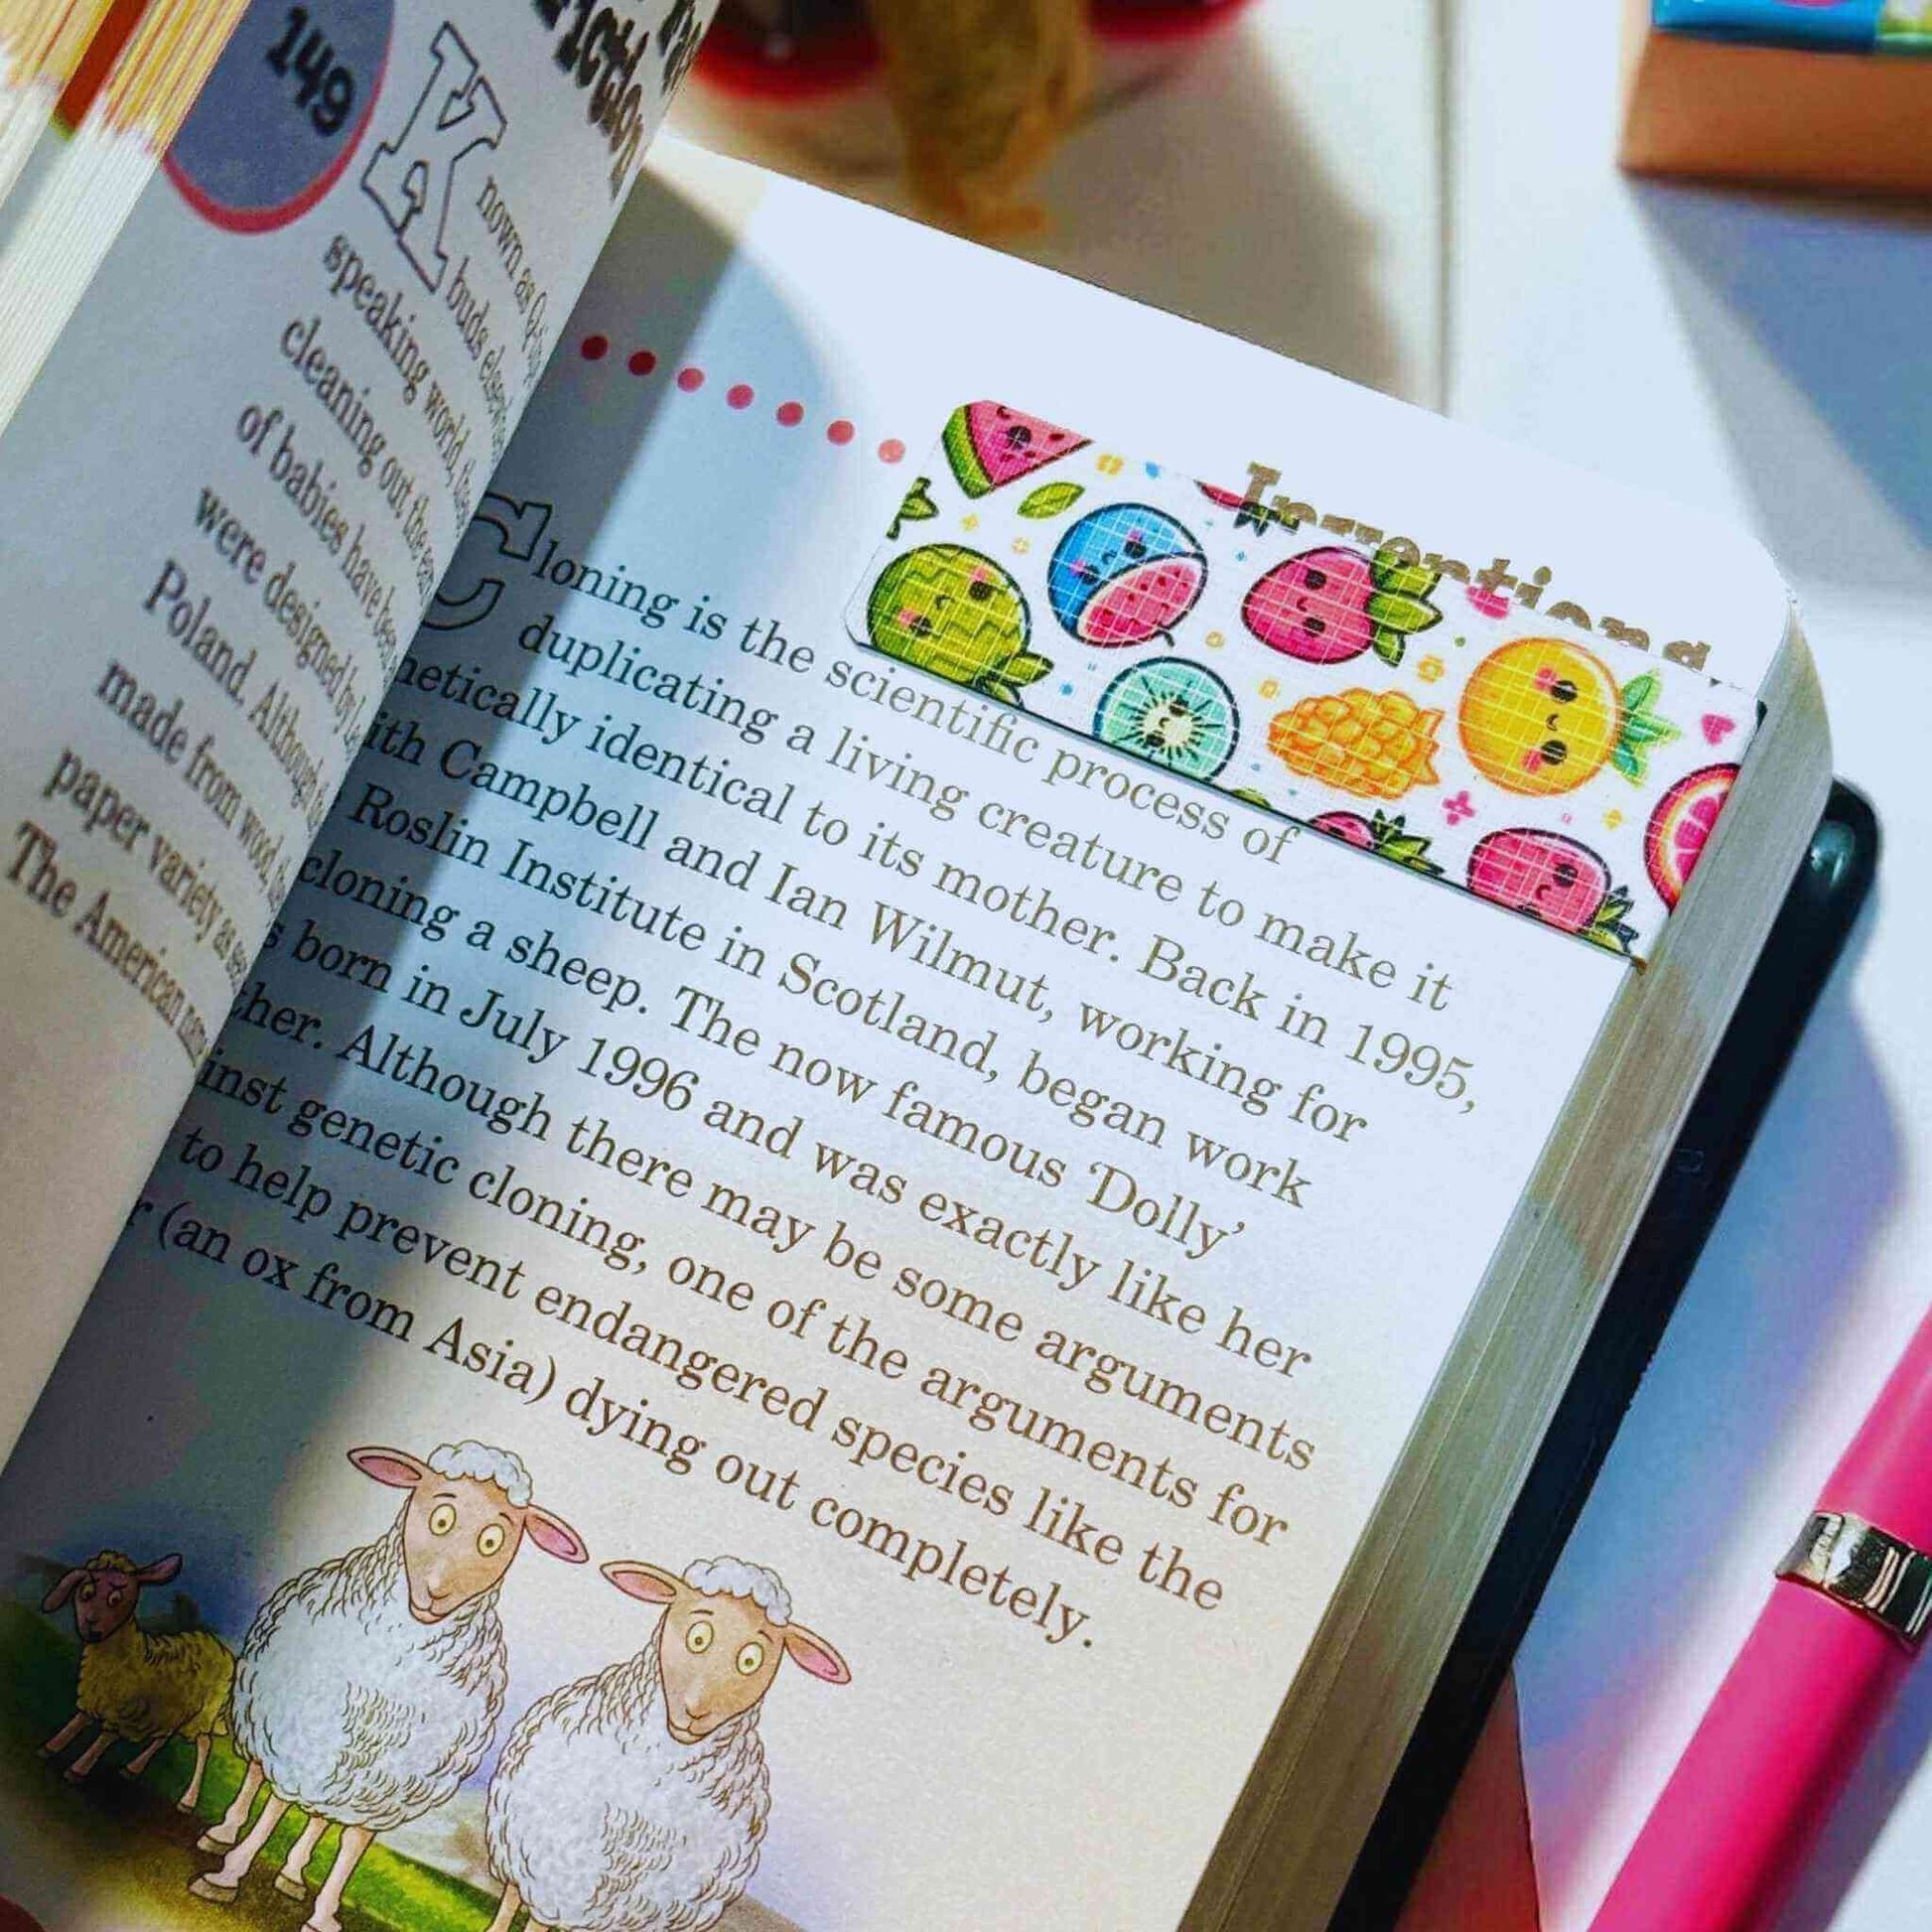 149
Fiction
Known as
buds
speaking world,
cleaning out the
of babies have
were designed by
Poland. Although
made from wood,
paper variety as
The American
Inventions
Cloning is the scientific process of
duplicating a living creature to make it
identical to its mother. Back in 1995,
Campbell and Ian Wilmut, working for
Roslin Institute in Scotland, began work
cloning a sheep. The now famous ‘Dolly’
born in July 1996 and was exactly like her
Although there may be some arguments
genetic cloning, one of the arguments for
to help prevent endangered species like the
(an ox from Asia) dying out completely.